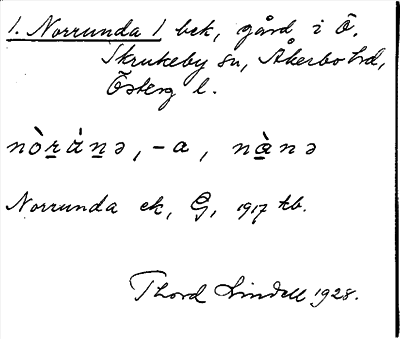 1. Norrunda / bek, gård i Ö.
Skrukeby sn, Åkerbo hd,
Österg l.
nòṟáṉə, -a, nàṉə
Norrunda ek, G, 1917 tb.
Thord Lindell 1928.